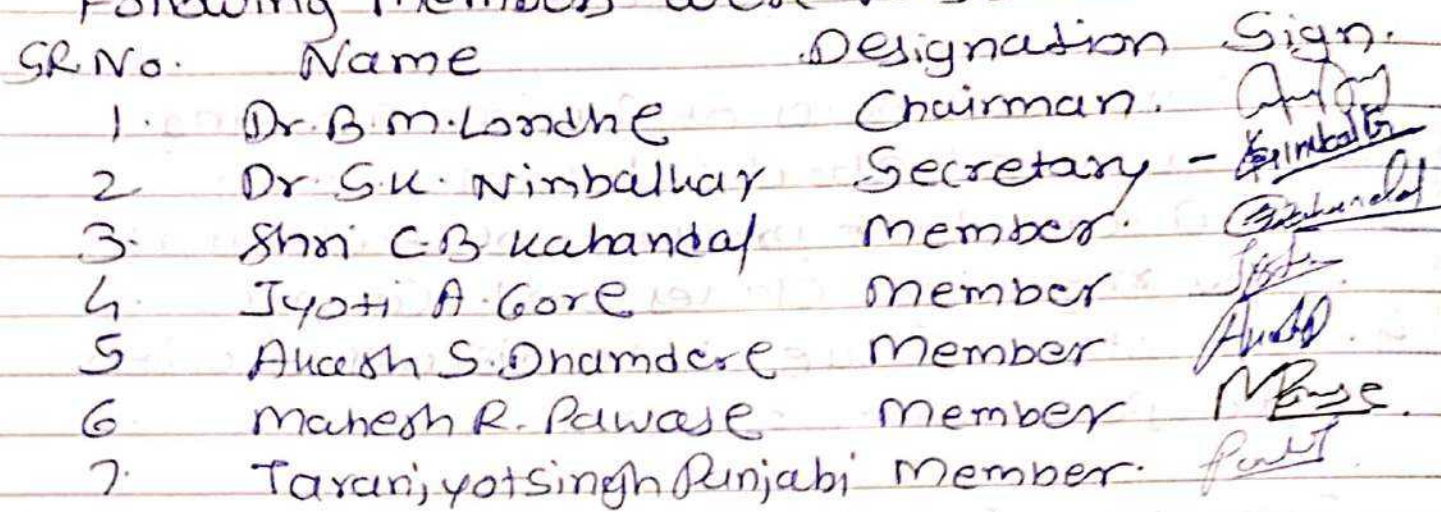 Following members were
SR.No. Name Designation Sign.
1. Dr. B. M. Londhe Chairman.
2 Dr. S.K. Nimbalkar Secretary -
3. Shri C.B Kahandal Member.
4. Jyoti A. Gore Member
5 Akash S. Dhamdere Member
6 Mahesh R. Pawase Member
7. Taranjyotsingh Punjabi Member.